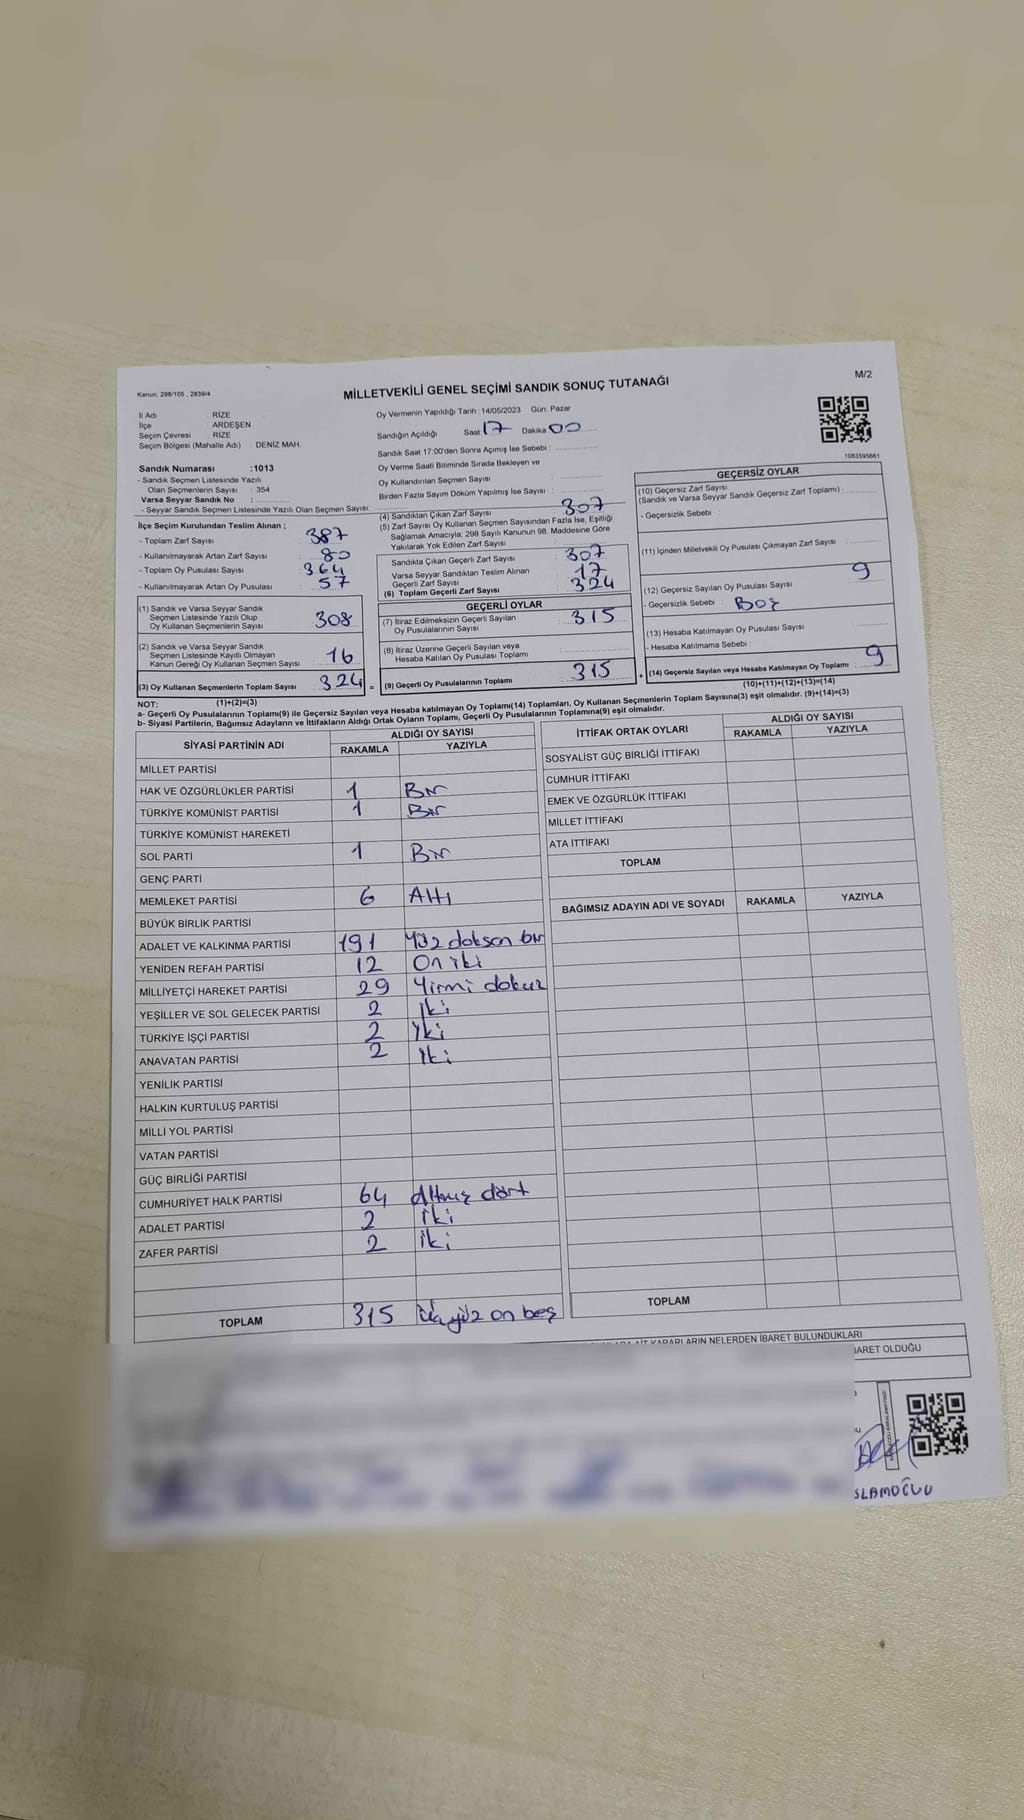 Kanun; 298/105 , 2839/4
MİLLETVEKİLİ GENEL SEÇİMİ SANDIK SONUÇ TUTANAĞI
M/2
İl Adı : RİZE
İlçe : ARDEŞEN
Seçim Çevresi : RİZE
Seçim Bölgesi (Mahalle Adı) : DENİZ MAH.
Oy Vermenin Yapıldığı Tarih :14/05/2023 Gün: Pazar
Sandığın Açıldığı Saat 17 Dakika 00
Sandık Saat 17:00'den Sonra Açımış İse Sebebi :
Oy Verme Saati Bitiminde Sırada Bekleyen ve
Oy Kullandırılan Seçmen Sayısı :
Birden Fazla Sayım Döküm Yapılmış İse Sayısı :
1083595661
Sandık Numarası :1013
- Sandık Seçmen Listesinde Yazılı
Olan Seçmenlerin Sayısı : 354
Varsa Seyyar Sandık No :
- Seyyar Sandık Seçmen Listesinde Yazılı Olan Seçmen Sayısı:
İlçe Seçim Kurulundan Teslim Alınan ;
- Toplam Zarf Sayısı : 387
- Kullanılmayarak Artan Zarf Sayısı : 80
- Toplam Oy Pusulası Sayısı : 364
- Kullanılmayarak Artan Oy Pusulası : 57
(1) Sandık ve Varsa Seyyar Sandık
Seçmen Listesinde Yazılı Olup
Oy Kullanan Seçmenlerin Sayısı : 308
(2) Sandık ve Varsa Seyyar Sandık
Seçmen Listesinde Kayıtlı Olmayan
Kanun Gereği Oy Kullanan Seçmen Sayısı : 16
(3) Oy Kullanan Seçmenlerin Toplam Sayısı : 324 =
(1)+(2)=(3)
(4) Sandıktan Çıkan Zarf Sayısı : 307
(5) Zarf Sayısı Oy Kullanan Seçmen Sayısından Fazla İse, Eşitliği
Sağlamak Amacıyla; 298 Sayılı Kanunun 98. Maddesine Göre
Yakılarak Yok Edilen Zarf Sayısı :
Sandıkta Çıkan Geçerli Zarf Sayısı : 307
Varsa Seyyar Sandıktan Teslim Alınan
Geçerli Zarf Sayısı : 17
(6) Toplam Geçerli Zarf Sayısı : 324
GEÇERLİ OYLAR
(7) İtiraz Edilmeksizin Geçerli Sayılan
Oy Pusulalarının Sayısı : 315
(8) İtiraz Üzerine Geçerli Sayılan veya
Hesaba Katılan Oy Pusulası Toplamı :
(9) Geçerli Oy Pusulalarının Toplamı : 315 +
GEÇERSİZ OYLAR
(10) Geçersiz Zarf Sayısı
(Sandık ve Varsa Seyyar Sandık Geçersiz Zarf Toplamı) :
- Geçersizlik Sebebi :
(11) İçinden Milletvekili Oy Pusulası Çıkmayan Zarf Sayısı :
(12) Geçersiz Sayılan Oy Pusulası Sayısı : 9
- Geçersizlik Sebebi : Boş
(13) Hesaba Katılmayan Oy Pusulası Sayısı :
- Hesaba Katılmama Sebebi :
(14) Geçersiz Sayılan veya Hesaba Katılmayan Oy Toplamı : 9
(10)+(11)+(12)+(13)=(14)
NOT:
a- Geçerli Oy Pusulalarının Toplamı(9) ile Geçersiz Sayılan veya Hesaba katılmayan Oy Toplamı(14) Toplamları, Oy Kullanan Seçmenlerin Toplam Sayısına(3) eşit olmalıdır. (9)+(14)=(3)
b- Siyasi Partilerin, Bağımsız Adayların ve İttifakların Aldığı Ortak Oyların Toplamı, Geçerli Oy Pusulalarının Toplamına(9) eşit olmalıdır.
SİYASİ PARTİNİN ADI
ALDIĞI OY SAYISI
RAKAMLA YAZIYLA
MİLLET PARTİSİ
HAK VE ÖZGÜRLÜKLER PARTİSİ 1 Bir
TÜRKİYE KOMÜNİST PARTİSİ 1 Bir
TÜRKİYE KOMÜNİST HAREKETİ
SOL PARTİ 1 Bir
GENÇ PARTİ
MEMLEKET PARTİSİ 6 Altı
BÜYÜK BİRLİK PARTİSİ
ADALET VE KALKINMA PARTİSİ 191 Yüz doksan bir
YENİDEN REFAH PARTİSİ 12 On iki
MİLLİYETÇİ HAREKET PARTİSİ 29 Yirmi dokuz
YEŞİLLER VE SOL GELECEK PARTİSİ 2 İki
TÜRKİYE İŞÇİ PARTİSİ 2 İki
ANAVATAN PARTİSİ 2 İki
YENİLİK PARTİSİ
HALKIN KURTULUŞ PARTİSİ
MİLLİ YOL PARTİSİ
VATAN PARTİSİ
GÜÇ BİRLİĞİ PARTİSİ
CUMHURİYET HALK PARTİSİ 64 Altmış dört
ADALET PARTİSİ 2 İki
ZAFER PARTİSİ 2 İki
TOPLAM 315 Üçyüz on beş
İTTİFAK ORTAK OYLARI
ALDIĞI OY SAYISI
RAKAMLA YAZIYLA
SOSYALİST GÜÇ BİRLİĞİ İTTİFAKI
CUMHUR İTTİFAKI
EMEK VE ÖZGÜRLÜK İTTİFAKI
MİLLET İTTİFAKI
ATA İTTİFAKI
TOPLAM
BAĞIMSIZ ADAYIN ADI VE SOYADI RAKAMLA YAZIYLA
TOPLAM
KARARLARIN NELERDEN İBARET BULUNDUKLARI
İBARET OLDUĞU
SLAMOĞLU